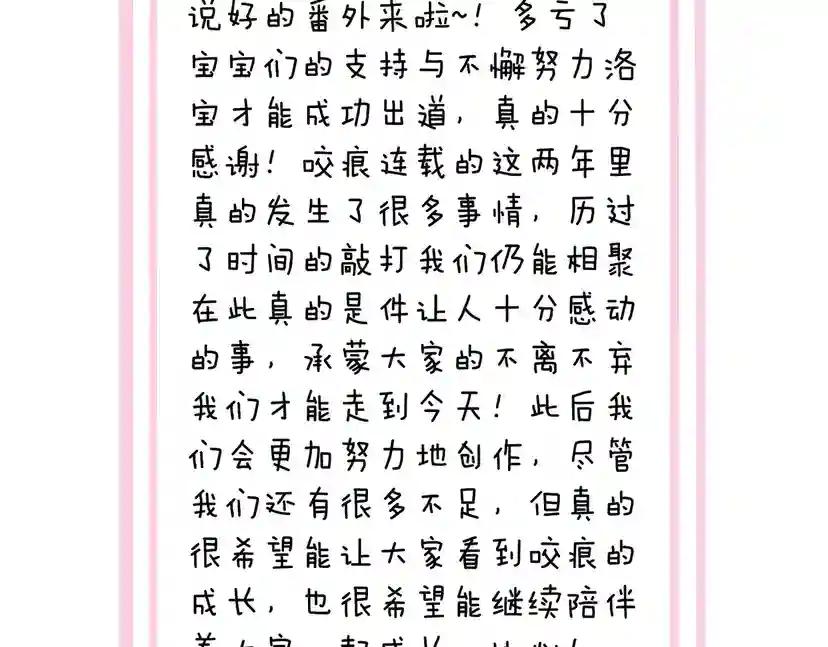 说好的番外来啦~！多亏了
宝宝们的支持与不懈努力洛
宝才能成功出道，真的十分
感谢！咬痕连载的这两年里
真的发生了很多事情，历过
了时间的敲打我们仍能相聚
在此真的是件让人十分感动
的事，承蒙大家的不离不弃
我们才能走到今天！此后我
们会更加努力地创作，尽管
我们还有很多不足，但真的
很希望能让大家看到咬痕的
成长，也很希望能继续陪伴
着大家一起成长